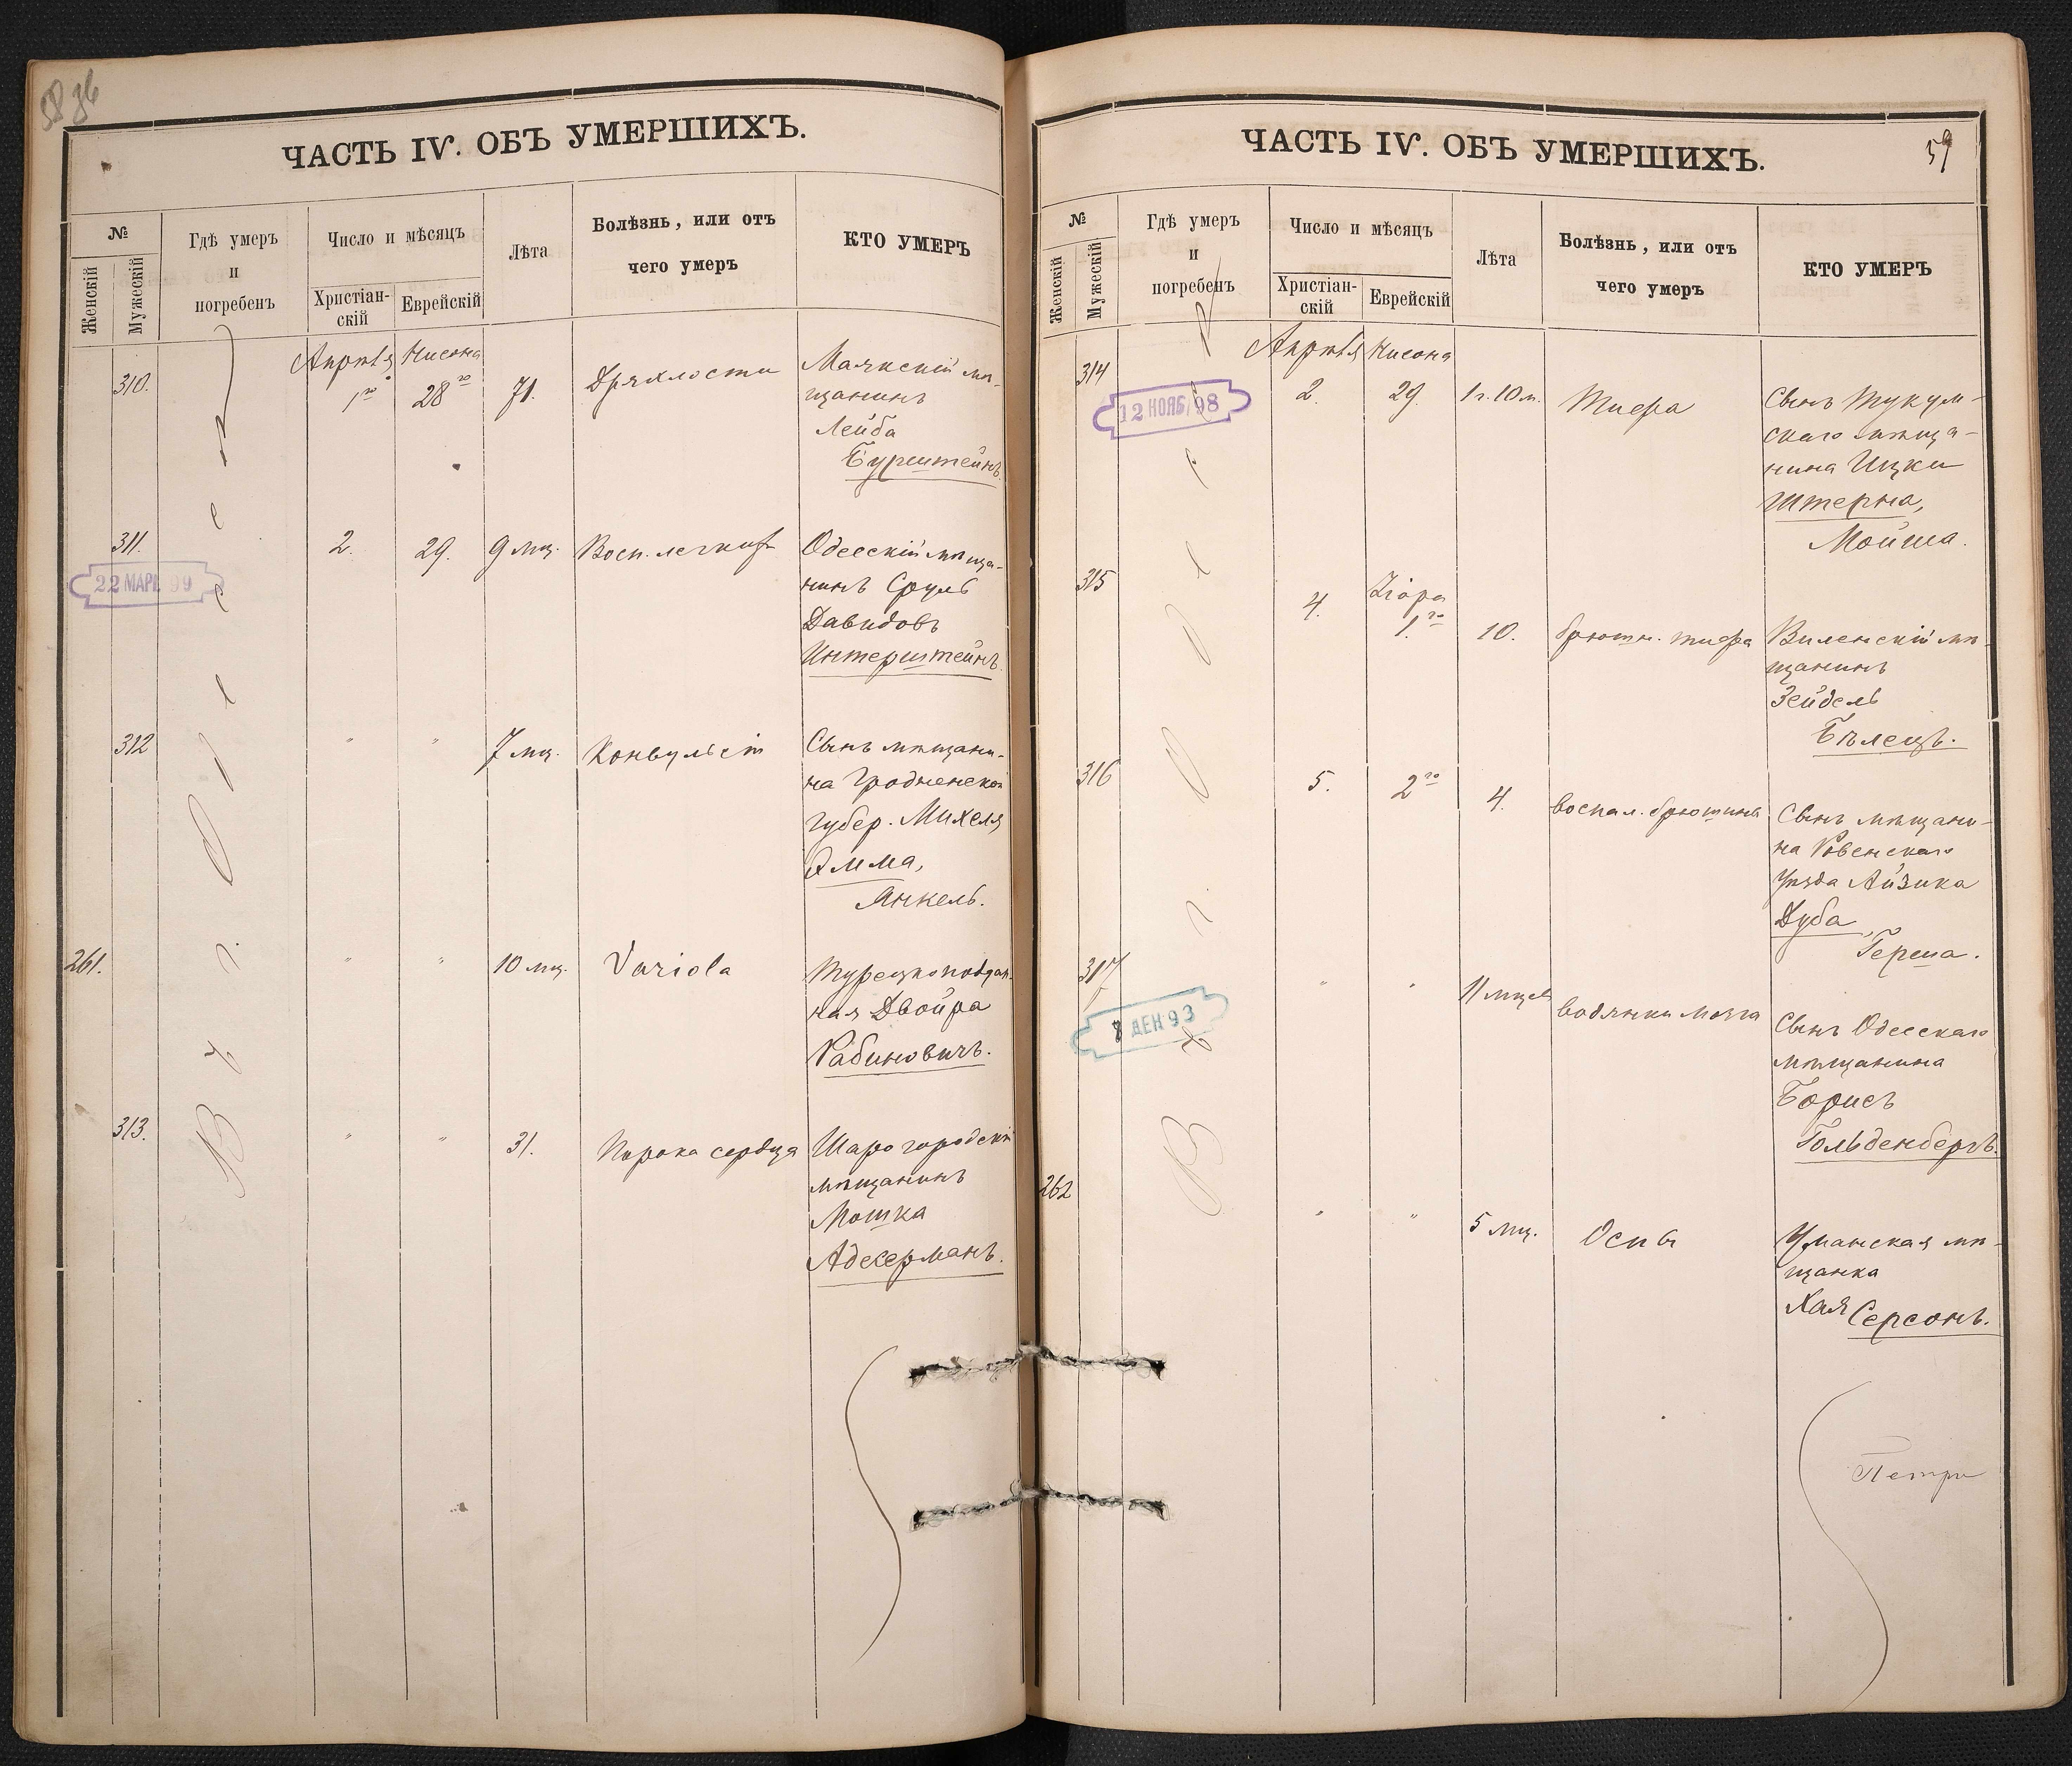 58 36
ЧАСТЬ IV. ОБЪ УМЕРШИХЪ.
№
Женскій
Мужескій
Гдѣ умеръ
и
погребенъ
Число и мѣсяцъ
Христіан-
скій
Еврейскій
Лѣта
Болѣзнь, или отъ
чего умеръ
КТО УМЕРЪ
В г. Одессе
310.
Апрѣля
1го
Нисона
28го
71.
Дряхлости
Маякскій мѣ-
щанинъ
Лейба
Бурштейнъ.
311.
22 МАР. 99
2.
29.
9 мц.
Восп. легких
Одесскій мѣща-
нинъ Сруль
Давидовъ
Интерштейнъ.
312
"
"
7 мц.
Конвульсій
Сынъ мѣщани-
на Гродненской
губер. Михеля
Эмма,
Янкель.
261.
"
"
10 мц.
Variola
Турецкоподдан-
ная Двойра
Рабиновичъ.
313.
"
"
31.
Порока сердца
Шаргородскій
мѣщанинъ
Мошка
Адесерманъ.
59
ЧАСТЬ IV. ОБЪ УМЕРШИХЪ.
№
Женскій
Мужескій
Гдѣ умеръ
и
погребенъ
Число и мѣсяцъ
Христіан-
скій
Еврейскій
Лѣта
Болѣзнь, или отъ
чего умеръ
КТО УМЕРЪ
В г. Одессе
314
12 НОЯБ. 98
Апрѣля
2.
Нисона
29.
1 г. 10 м.
Тифа
Сынъ Тукум-
скаго мѣща-
нина Ицки
Штерна,
Мойша.
315
4.
Іора
1.го
10.
брюшн. тифа
Виленскій мѣ-
щанинъ
Зейдель
Бѣлецъ.
316
5.
2го
4.
воспал. брюшины
Сынъ мѣщани-
на Ровенскаго
уѣзда Айзика
Дуба,
Герша.
317
7 ДЕН 93
"
"
11 мцев
водянки мозга
Сынъ Одесскаго
мѣщанина
Борисъ
Гольденбергъ.
262
"
"
5 мц.
Оспы
Уманская мѣ-
щанка
Хая Серсонъ.